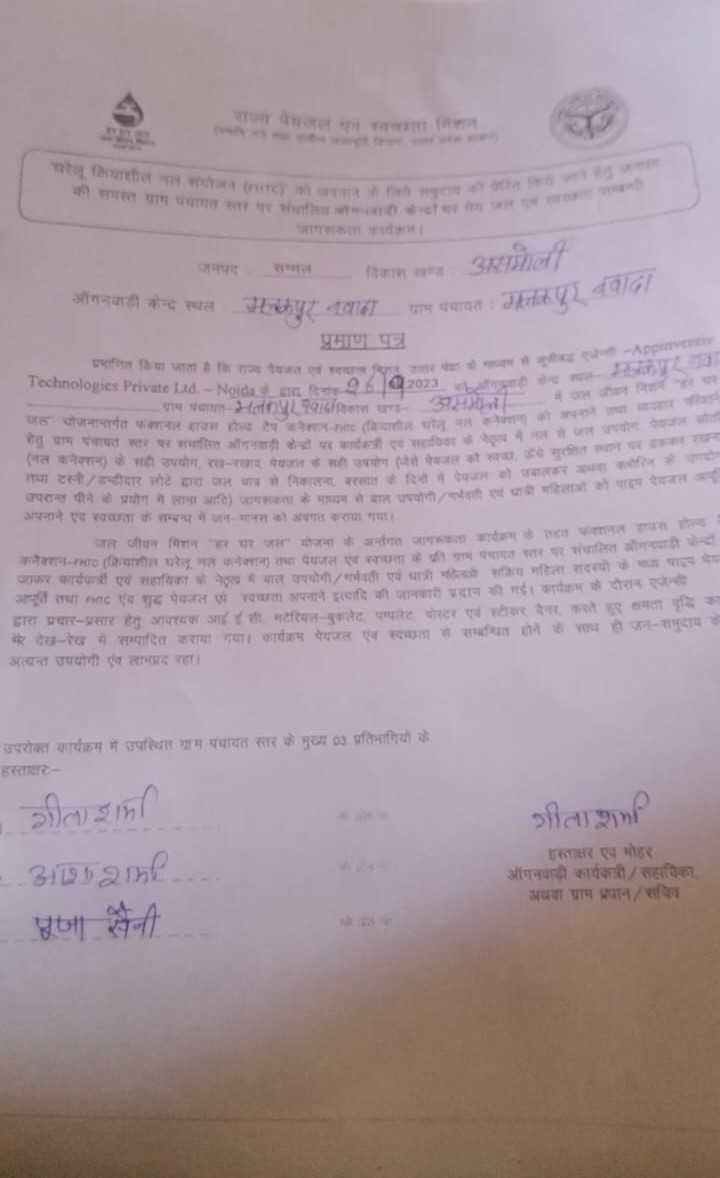 राज्य पेयजल एवं स्वच्छता मिशन
घरेलू क्रियाशील नल संयोजन (FHTC) को अपनाने के लिये समुदाय को प्रेरित किये जाने हेतु जनपद
की समस्त ग्राम पंचायत स्तर पर संचालित ऑगनवाडी केन्द्रों पर पेय जल एवं स्वच्छता सम्बन्धी
जागरूकता कार्यक्रम।
जनपद : सम्भल विकास खण्ड : असमोली
ऑगनवाडी केन्द्र स्थल : मलकपुर नवादा ग्राम पंचायत : मलकपुर नवादा
प्रमाण पत्र
प्रमाणित किया जाता है कि राज्य पेयजल एवं स्वच्छता मिशन, उत्तर प्रदेश के माध्यम से सूचीबद्ध एजेन्सी –Appinventiv
Technologies Private Ltd. – Noida के द्वारा दिनांक 26/9 2023 को ऑगनवाडी केन्द्र स्थल– मलकपुर नवा
ग्राम पंचायत– मलकपुर नवादा विकास खण्ड– असमोली में जल जीवन मिशन "हर घर
जल" योजनान्तर्गत फंक्शनल हाउस होल्ड टैप कनेक्शन–FHTC (क्रियाशील घरेलू नल कनेक्शन) को अपनाने तथा व्यवहार
हेतु ग्राम पंचायत स्तर पर संचालित ऑगनवाडी केन्द्रों पर कार्यकत्री एवं सहायिका के नेतृत्व में नल से जल उपयोग, पेयजल
(नल कनेक्शन) के सही उपयोग, रख–रखाव, पेयजल के सही उपयोग (जैसे पेयजल को स्वच्छ, ऊँचे सुरक्षित स्थान पर ढककर रखना
तथा टस्नी/डन्डीदार लोटे द्वारा जल पात्र से निकालना, बरसात के दिनों में पेयजल को उबालकर अथवा क्लोरिन के उपयोग
उपरान्त पीने के प्रयोग में लाना आदि) जागरूकता के माध्यम से बाल उपयोगी/गर्भवती एवं धात्री महिलाओं को पाइप पेयजल
अपनाने एंव स्वच्छता के सम्बन्ध में जन–मानस को अवगत कराया गया।
जल जीवन मिशन "हर घर जल" योजना के अर्न्तगत जागरूकता कार्यक्रम के तहत फंक्शनल हाउस होल्ड
कनैक्शन–FHTC (क्रियाशील घरेलू नल कनेक्शन) तथा पेयजल एंव स्वच्छता के प्रती ग्राम पंचायत स्तर पर संचालित ऑगनवाडी केन्द्रों
जाकर कार्यकत्री एवं सहायिका के नेतृत्व में बाल उपयोगी/गर्भवती एवं धात्री महिलओं सक्रिय महिला सदस्यों के मध्य पाइप पेय
आपूर्ति तथा FHTC एंव शुद्ध पेयजल एवं स्वच्छता अपनाने इत्यादि की जानकारी प्रदान की गई। कार्यक्रम के दौरान एजेन्सी
द्वारा प्रचार–प्रसार हेतु आवश्यक आई ई सी. मटेरियल–बुकलेट, पम्पलेट, पोस्टर एवं स्टीकर बैनर, करते हुए क्षमता वृद्धि का
मेरे देख–रेख में सम्पादित कराया गया। कार्यक्रम पेयजल एंव स्वच्छता से सम्बन्धित होने के साथ ही जन–समुदाय के
अत्यन्त उपयोगी एंव लाभप्रद रहा।
उपरोक्त कार्यक्रम में उपस्थित ग्राम पंचायत स्तर के मुख्य 03 प्रतिभागियों के
हस्ताक्षरः–
गीता शर्मा
शर्मा
पूजा सैनी
गीता शर्मा
हस्ताक्षर एंव मोहर
ऑगनवाडी कार्यकत्री/सहायिका,
अथवा ग्राम प्रधान/सचिव